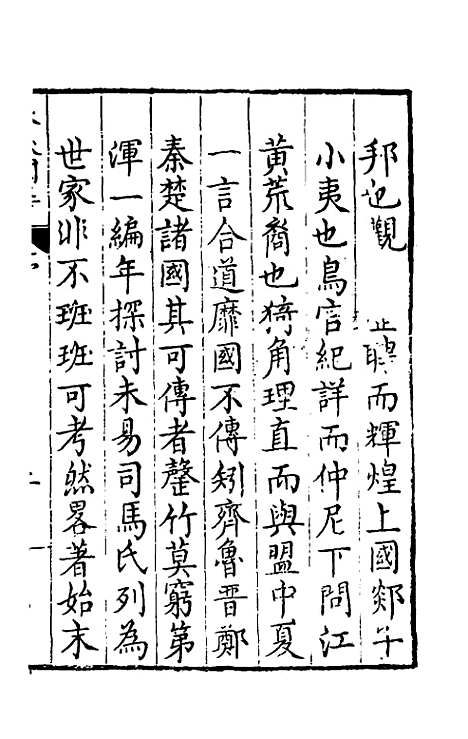 邦也觀 聘而輝煌上國郯子
小夷也鳥官紀詳而仲尼下問江
黃荒裔也犄角理直而與盟中夏
一言合道靡國不傳矧齊魯晉鄭
秦楚諸國其可傳者罄竹莫窮第
渾一編年探討未易司馬氏列為
世家非不班班可考然畧著始末